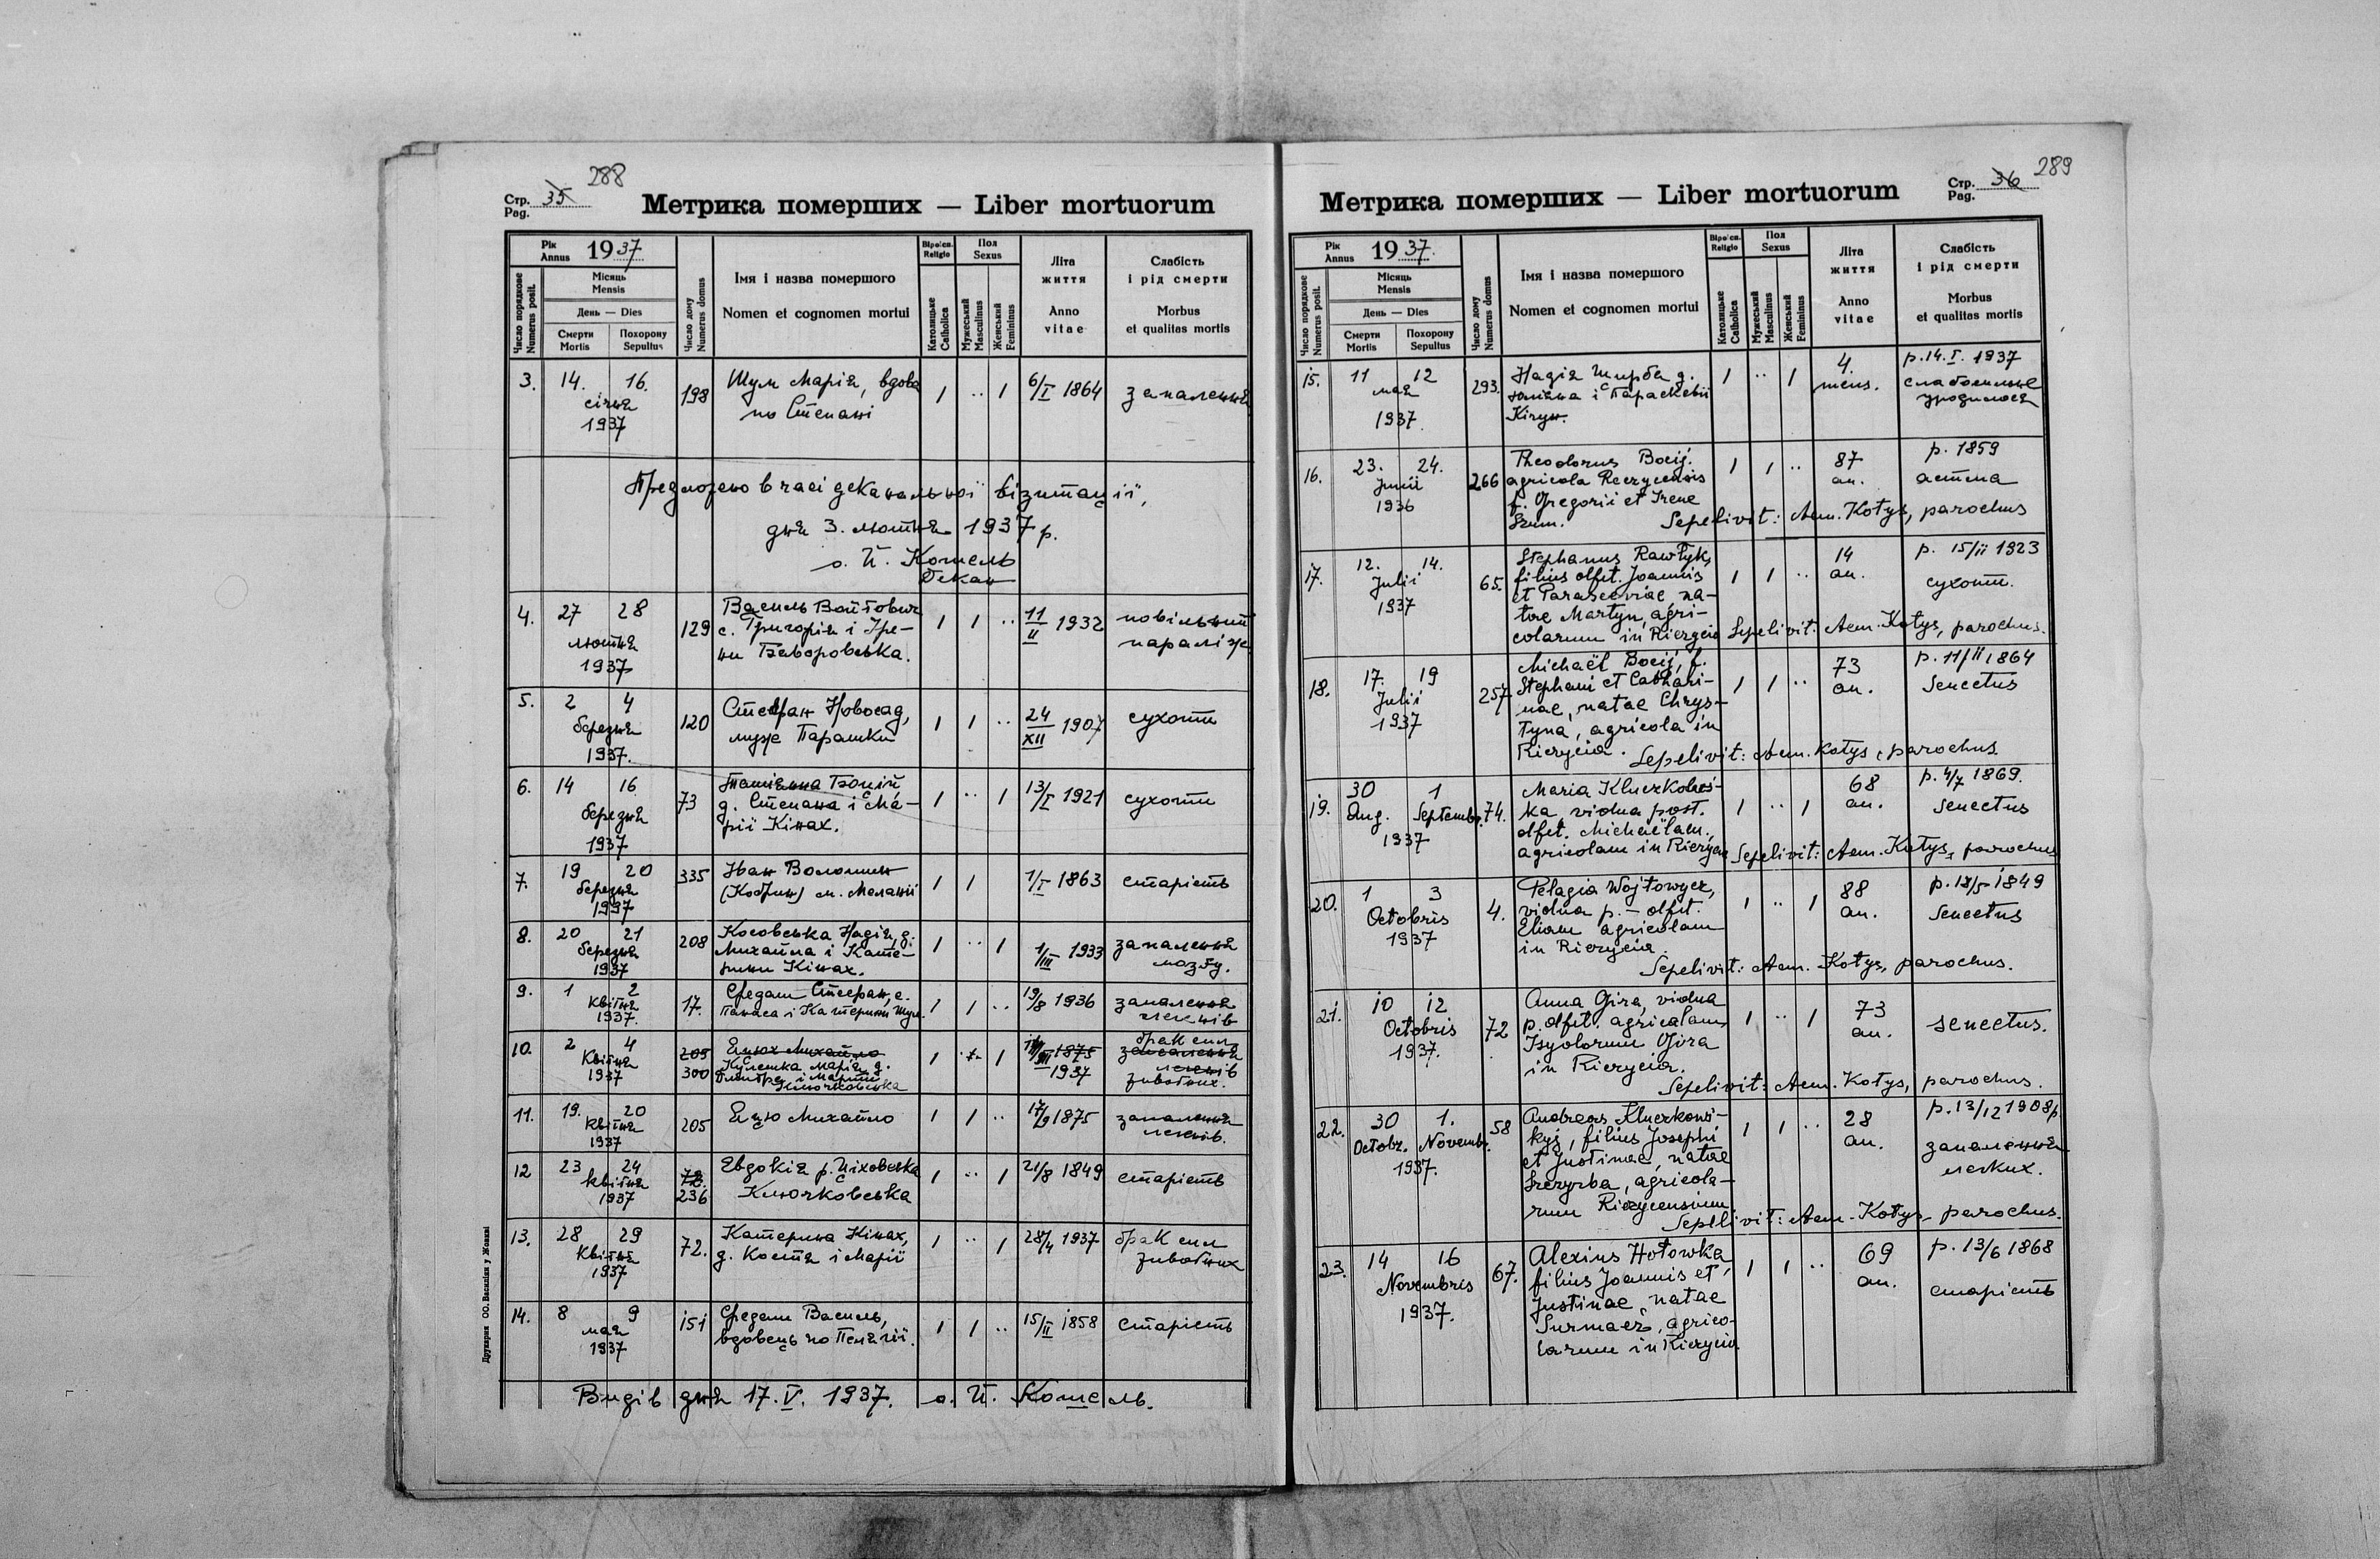 288
Стр. 35
Pag.
Метрика померших — Liber mortuorum
Рік
Annus 1937
Число порядкове
Numerus posit.
Місяць
Mensis
День — Dies
Смерти
Mortis
Похорону
Sepultus
Число дому
Numerus domus
Імя і назва помершого
Nomen et cognomen mortui
Віроісп.
Religio
Католицьке
Catholica
Пол
Sexus
Мужеський
Masculinus
Женський
Femininus
Літа
життя
Anno
vitae
Слабість
і рід смерти
Morbus
et qualitas mortis
3. 14. 16. 198 Шум Марія, вдова 1 .. 1 6/I 1864 запалення
січня по Степані
1937
Предложено в часі деканальної візитації,
дня 3. лютня 1937 р.
о. Й. Кошель
Декан
4. 27 28 129 Василь Войтович 1 1 .. 11/II 1932 повільний
лютня с. Григорія і Іре- параліж
1937 ни Баворовська.
5. 2 4 120 Стефан Новосад, 1 1 .. 24/XII 1907 сухоти
березня муж Парашки
1937.
6. 14 16 73 Татіянна Боцій 1 .. 1 13/I 1921 сухоти
березня д. Степана і Ма-
1937 рії Кінах.
7. 19 20 335 Іван Волошин 1 1 1/I 1863 старість
березня (Кобрин) м. Меланії
1937
8. 20 21 208 Косовська Надія, д. 1 .. 1 1/III 1933 запалення
березня Михайла і Кате- мозгу.
1937 рини Кінах.
9. 1 2 17. Федаш Стефан, с. 1 1 .. 19/8 1936 запалення
квітня Панаса і Катерини Шум. легенів
1937.
10. 2 4 205 Ецюх Михайло 1 1 1875 брак сил
квітня 300 Кулешка Марія, д. 1937 запалення
1937 Дмитра і Марії легенів
Ключковська животних.
11. 19. 20 205 Ецю Михайло 1 1 .. 17/9 1875 запалення
квітня легенів.
1937
12 23 24 72. Евдокія р. Ціховська 1 .. 1 21/8 1849 старість
квітня 236 Ключковська
1937
13. 28 29 72. Катерина Кінах, 1 .. 1 28/4 1937 брак сил
квітня д. Костя і Марії животних
1937
14. 8 9 151 Федаш Василь, 1 1 .. 15/II 1858 старість
мая вдовець по Пелагії.
1937
Видів дня 17. V. 1937. о. Й. Кошель.
Друкарня ОО. Василіян у Жовкві
289
Метрика померших — Liber mortuorum
Стр. 36
Pag.
Рік
Annus 1937.
Число порядкове
Numerus posit.
Місяць
Mensis
День — Dies
Смерти
Mortis
Похорону
Sepultus
Число дому
Numerus domus
Імя і назва помершого
Nomen et cognomen mortui
Віроісп.
Religio
Католицьке
Catholica
Пол
Sexus
Мужеський
Masculinus
Женський
Femininus
Літа
життя
Anno
vitae
Слабість
і рід смерти
Morbus
et qualitas mortis
15. 11 12 293. Надія Щирба д. 1 .. 1 4. р. 14. I. 1937
мая Юліяна і Параскевії mens. слабосильне
1937. Кігун. уродилося
16. 23. 24. 266 Theodorus Bocij. 1 1 .. 87 р. 1859
Junii agricola Riczycensis an. астма
1936 f. Gregorii et Irene
Szum. Sepelivit: Aem. Kotys, parochus
17. 12. 14. 65. Stephanus Rawłyk, 1 1 .. 14 р. 15/II 1923
Julii filius olfet. Joannis an. сухоти.
1937 et Parasceviae na-
tae Martyn, agri-
colarum in Riczycia Sepelivit: Aem. Kotys, parochus.
18. 17. 19 257 Michaël Bocij, f. 1 1 .. 73 р. 11/II 1864
Julii Stephani et Cathari- an. Senectus
1937 nae, natae Chrys-
tyna, agricola in
Riczycia. Sepelivit: Aem. Kotys, parochus.
19. 30 1 74. Maria Kluczkowś- 1 .. 1 68 р. 4/7 1869.
Aug. Septembr. ka, vidua post. an. Senectus
1937 olfet. Michaëlam,
agricolam in Riczycia Sepelivit: Aem. Kotys, parochus
20. 1 3 4. Pelagia Wojtowycz, 1 .. 1 88 р. 18/5 1849
Octobris vidua p. – olfet. an. Senectus
1937 Eliam agricolam
in Riczycia.
Sepelivit: Aem. Kotys, parochus.
21. 10 12 72 Anna Gira, vidua 1 .. 1 73
Octobris p. olfet. agricolam an. senectus.
1937. Isydorum Gira
in Riczycia.
Sepelivit: Aem. Kotys, parochus.
22. 30 1. 58 Andreas Kluczkowś- 1 1 .. 28 р. 13/12 1908 р.
Octobr. Novembr. kyj, filius Josephi an. запалення
1937. et Justinae, natae легких.
Szczyrba, agricola-
rum Riczycensium
Sepelivit: Aem. Kotys, parochus.
23. 14 16 67. Alexius Hołowka 1 1 .. 69 р. 13/6 1868
Novembris filius Joannis et an. старість
1937. Justinae, natae
Surmacz, agrico-
larum in Riczycia.